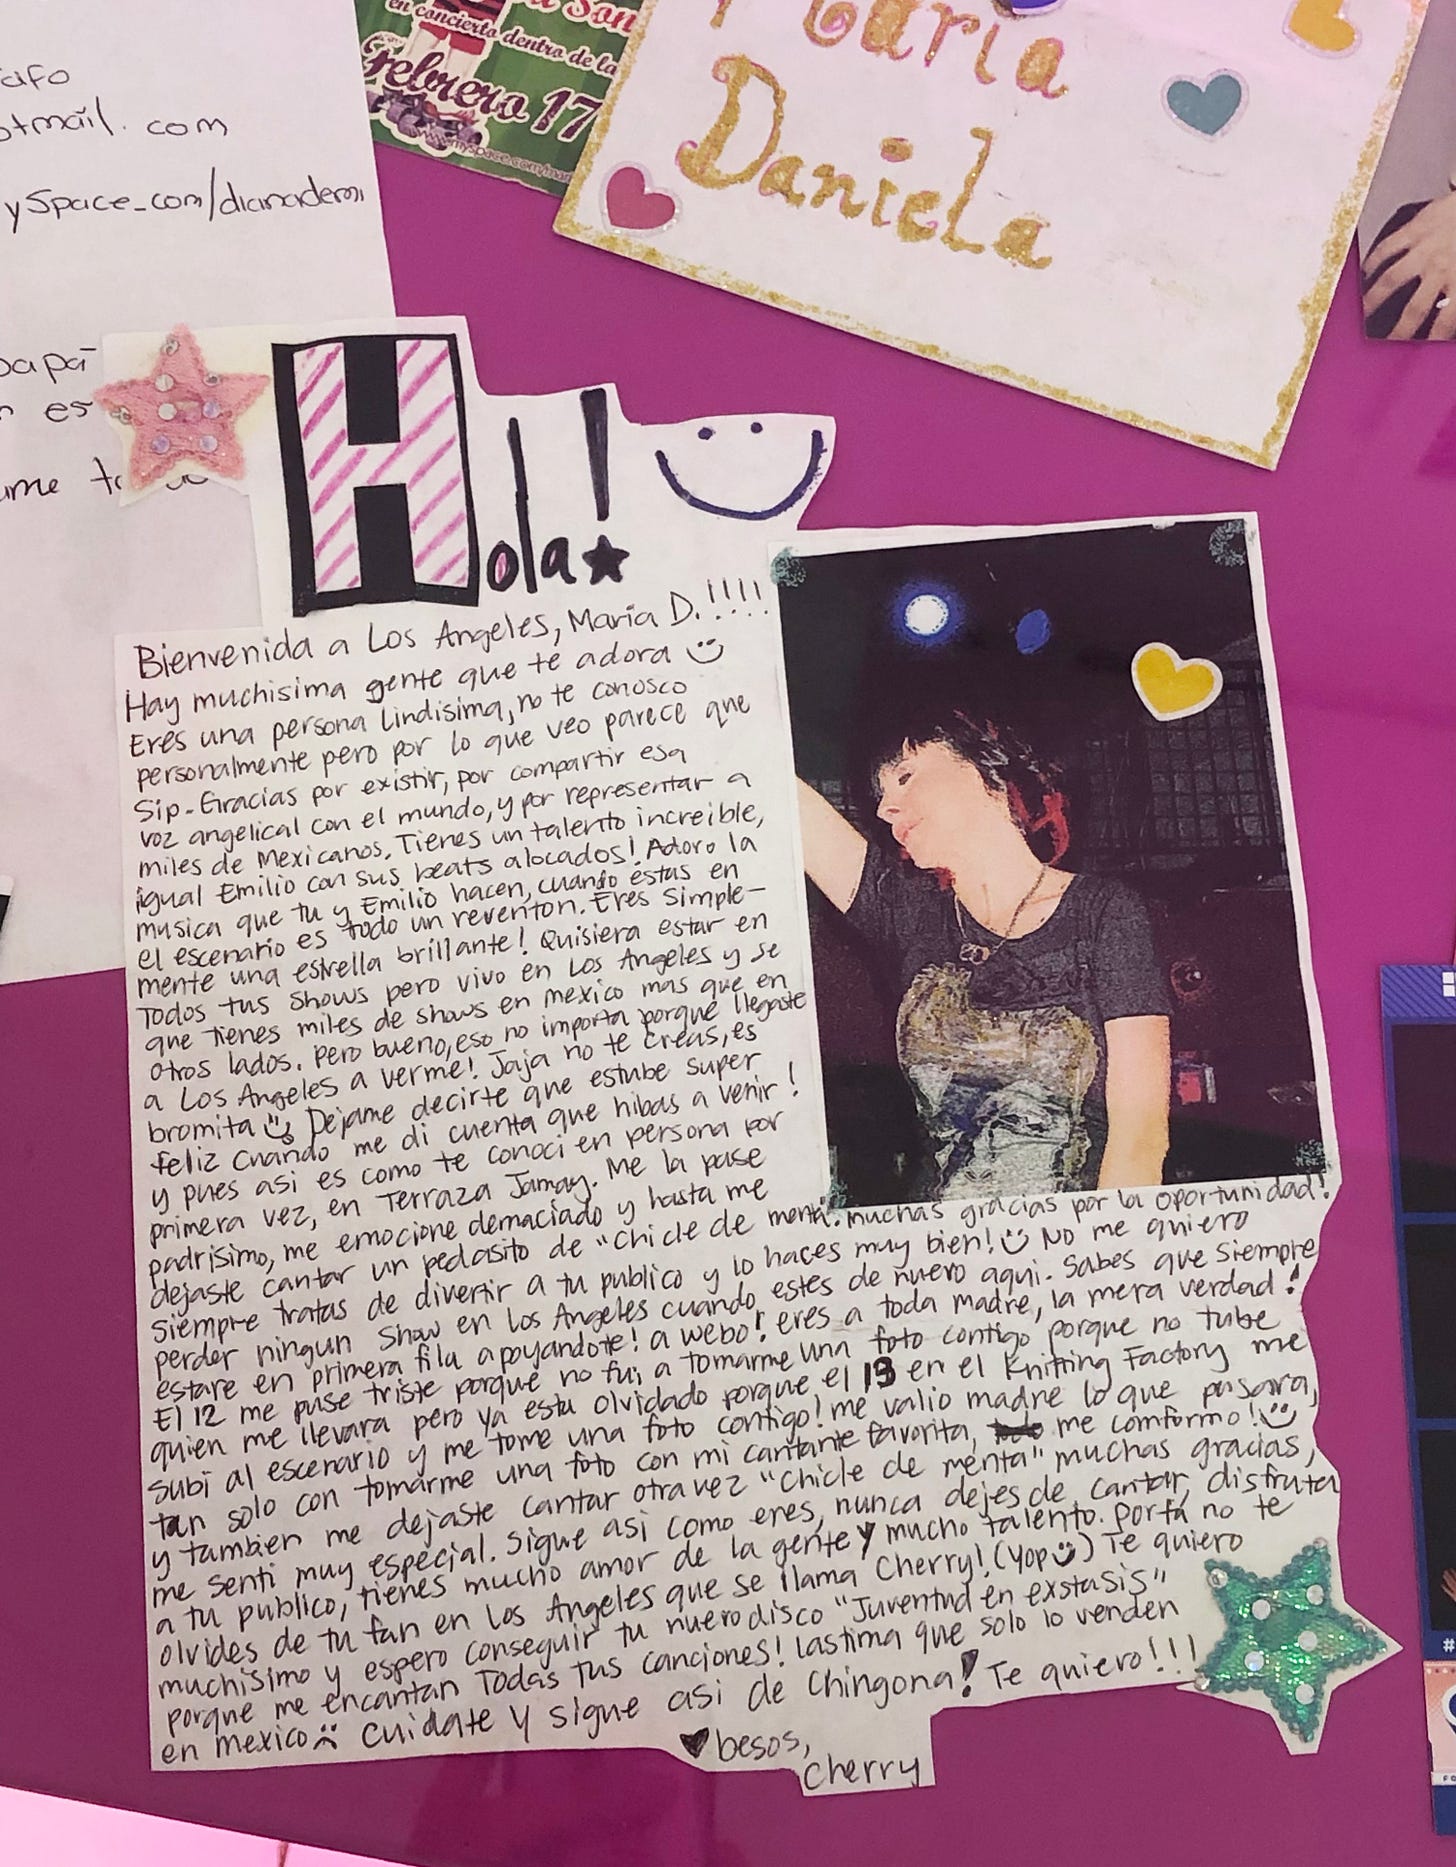 afo
otmail.com
yspace_com/dianademi
papá
es
ume
en concierto dentro de la
Febrero 17
www.myspace.com/mari
María
Daniela
Hola!
Bienvenida a Los Angeles, Maria D.!!!!
Hay muchisima gente que te adora
Eres una persona lindisima, no te conosco
personalmente pero por lo que veo parece que
Sip. Gracias por existir, por compartir esa
voz angelical con el mundo, y por representar a
miles de Mexicanos. Tienes un talento increible,
igual Emilio con sus beats alocados! Adoro la
musica que tu y Emilio hacen, cuando estas en
el escenario es todo un reventon. Eres Simple-
mente una estrella brillante! Quisiera estar en
Todos tus shows pero vivo en Los Angeles y se
que tienes miles de shows en mexico mas que en
otros lados. Pero bueno, eso no importa porque llegaste
a Los Angeles a verme! Jaja no te creas, es
bromita Dejame decirte que estube super
feliz cuando me di cuenta que hibas a venir!
y pues asi es como te conoci en persona por
primera vez, en Terraza Jamay. Me la pase
padrisimo, me emocione demaciado y hasta me
dejaste cantar un pedasito de "Chicle de menta". Muchas gracias por la oportunidad!
Siempre tratas de divertir a tu publico y lo haces muy bien! No me quiero
perder ningun show en los Angeles cuando estes de nuevo aqui. Sabes que siempre
estare en primera fila apoyandote! a webo! eres a toda madre, la mera verdad!
El 12 me puse triste porque no fui a tomarme una foto contigo porque no tube
quien me llevara pero ya esta olvidado porque el 13 en el Knitting Factory me
subi al escenario y me tome una foto contigo! me valio madre lo que pasara,
tan solo con tomarme una foto con mi cantante favorita, me comformo!
y tambien me dejaste cantar otra vez "Chicle de menta" muchas gracias,
me senti muy especial. Sigue asi como eres, nunca dejes de cantar, disfruta
a tu publico, tienes mucho amor de la gente y mucho talento. Porfa no te
olvides de tu fan en Los Angeles que se llama Cherry! (Yop) Te quiero
muchisimo y espero conseguir tu nuevo disco "Juventud en extasis"
porque me encantan Todas tus canciones! lastima que solo lo venden
en mexico Cuidate y sigue asi de Chingona! Te quiero!!!
besos,
Cherry